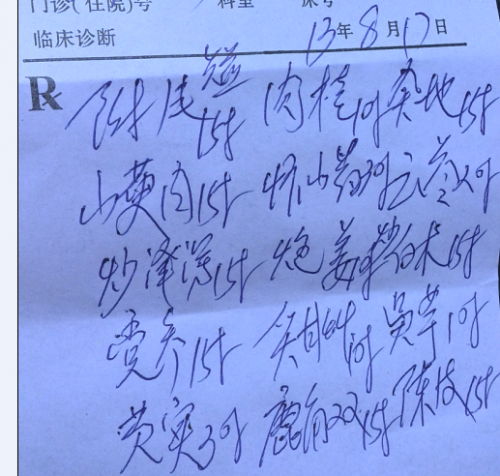 门诊(住院)号 科室 床号
临床诊断 13年8月17日
Rx 附片 15g 肉桂10g 熟地15g
山萸肉15g 怀山药30g 云苓20g
炒泽泻15g 炮姜 白术15g
党参15g 炙甘草10g 吴萸10g
芡实30g 鹿角霜15g 陈皮15g